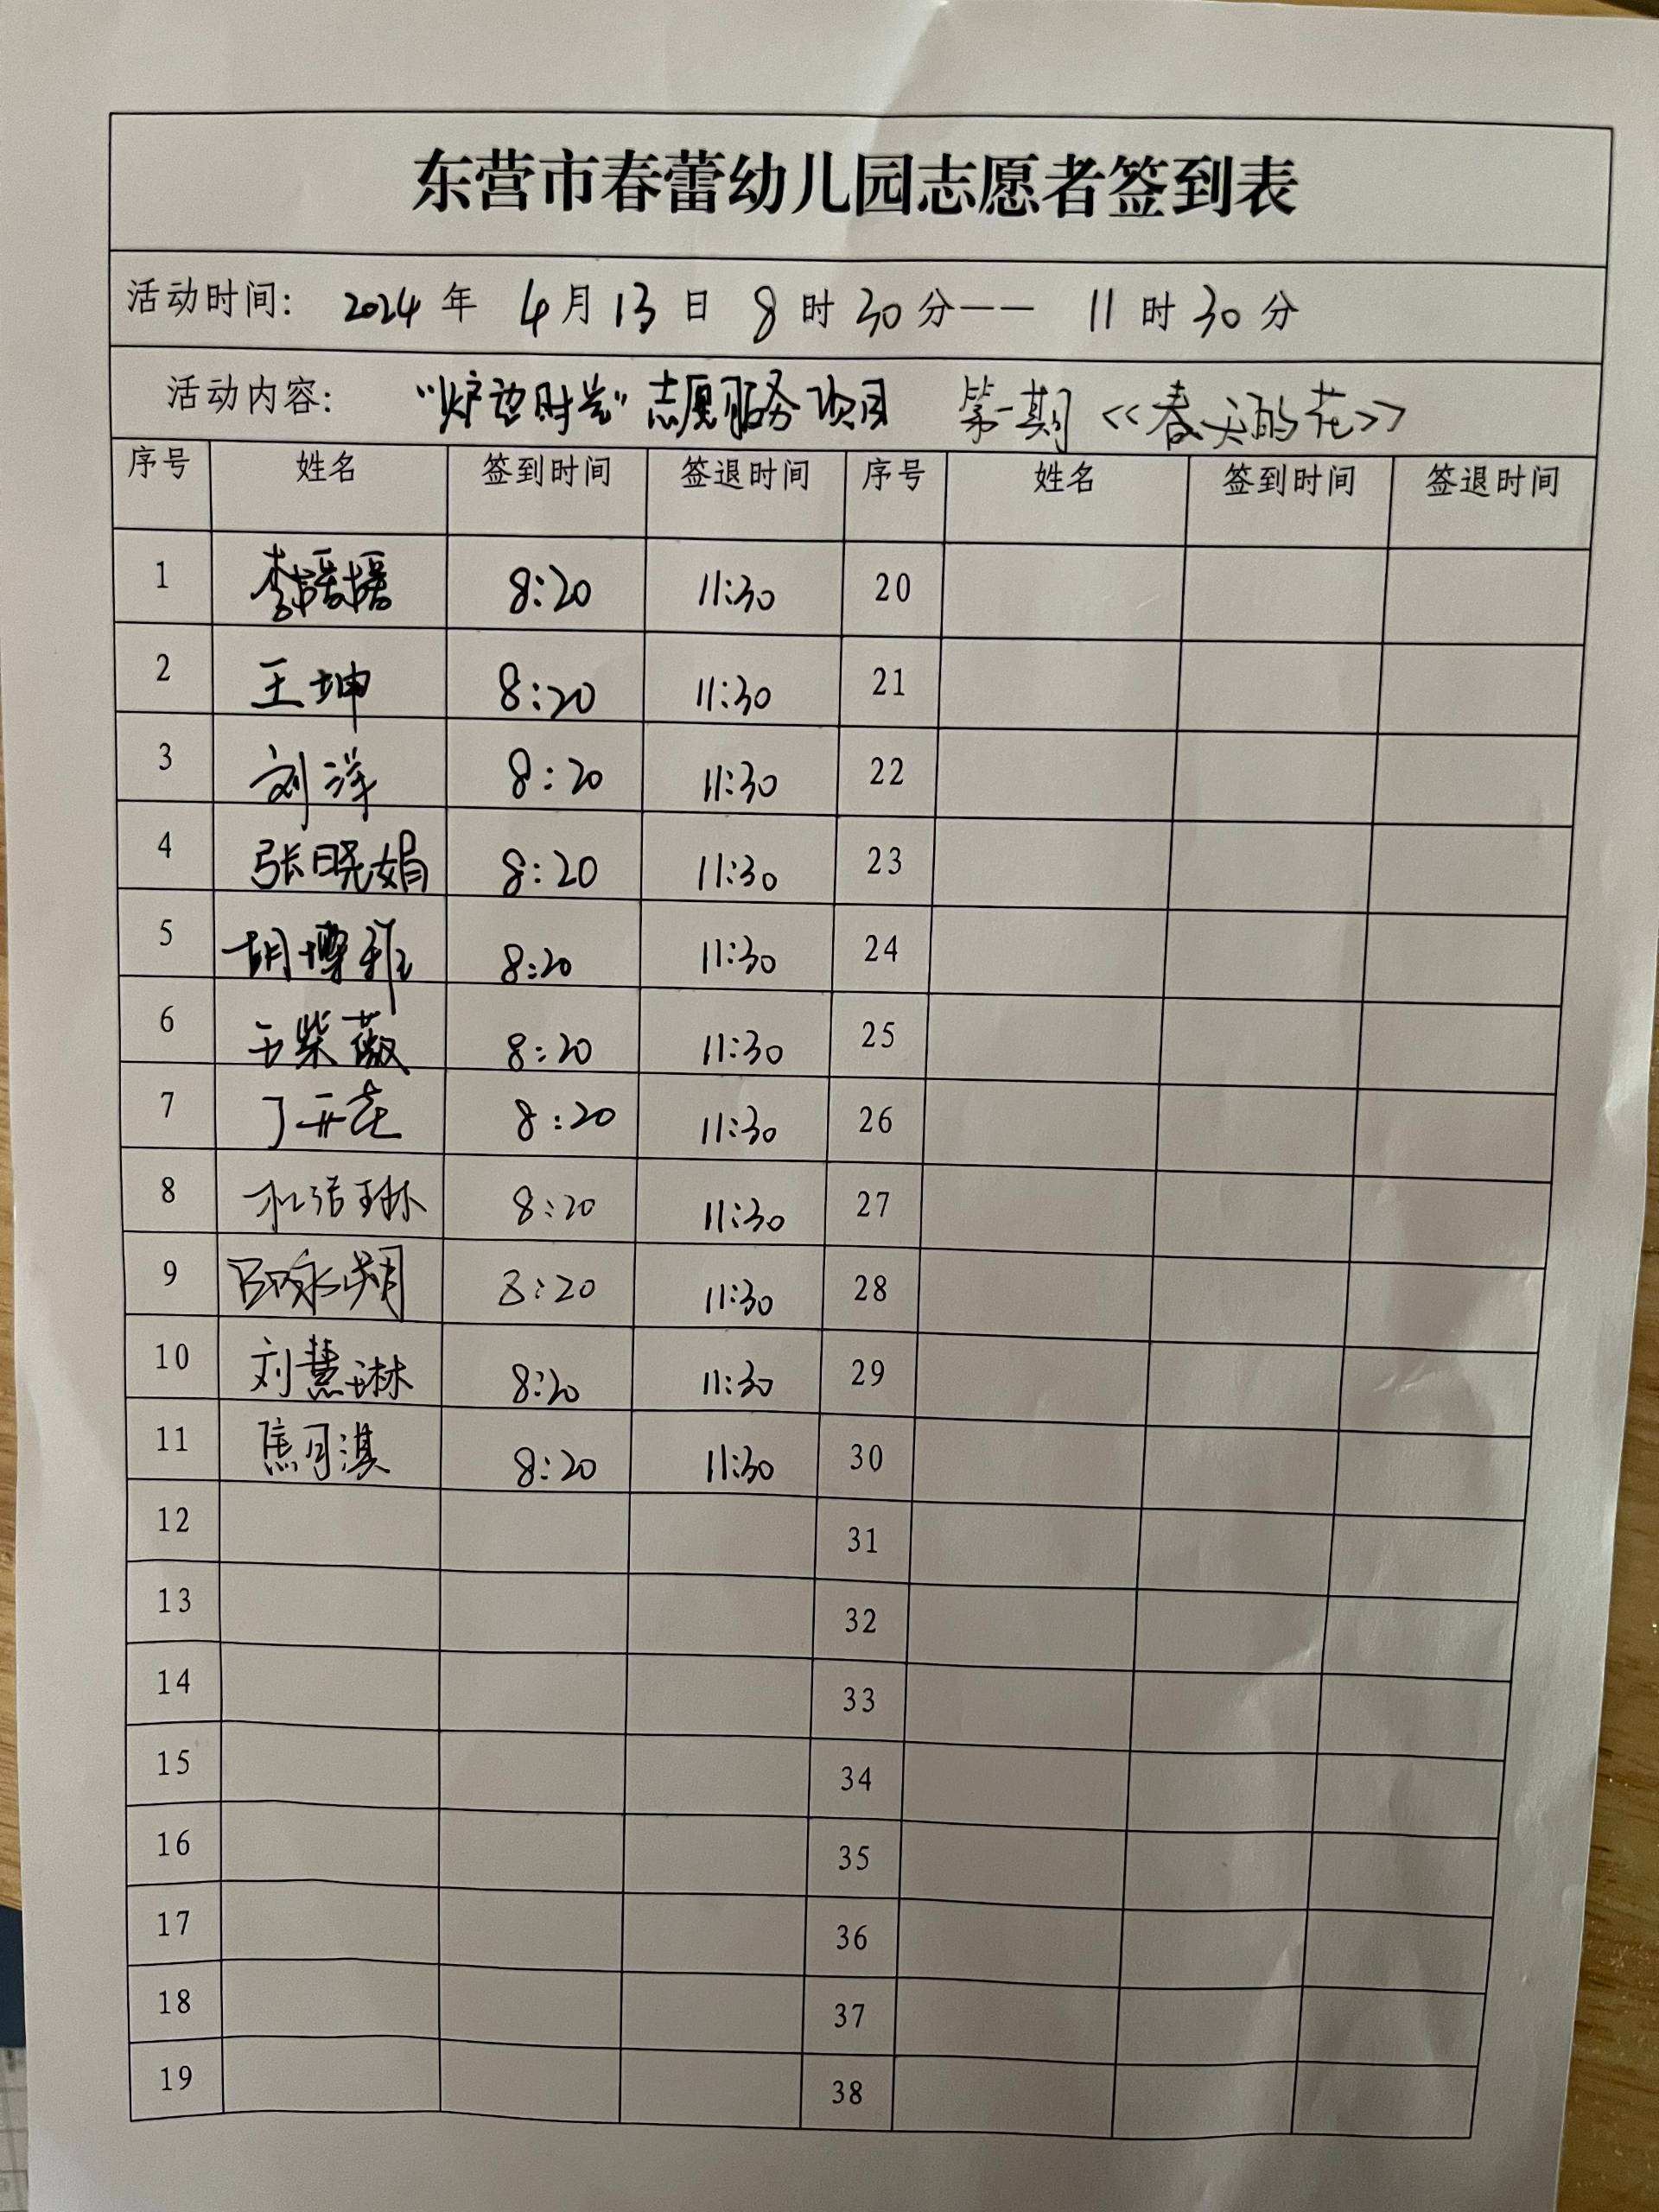 东营市春蕾幼儿园志愿者签到表
活动时间: 2024 年 4 月 13 日 8 时 30 分—— 11 时 30 分
活动内容: “炉边时光”志愿服务项目 第一期 <<春天的花>>
序号 姓名 签到时间 签退时间 序号 姓名 签到时间 签退时间
1 李媛媛 8:20 11:30 20
2 王坤 8:20 11:30 21
3 刘洋 8:20 11:30 22
4 张晓娟 8:20 11:30 23
5 胡博雅 8:20 11:30 24
6 王紫薇 8:20 11:30 25
7 丁 8:20 11:30 26
8 8:20 11:30 27
9 8:20 11:30 28
10 刘慧琳 8:20 11:30 29
11 焦月淇 8:20 11:30 30
12 31
13 32
14 33
15 34
16 35
17 36
18 37
19 38